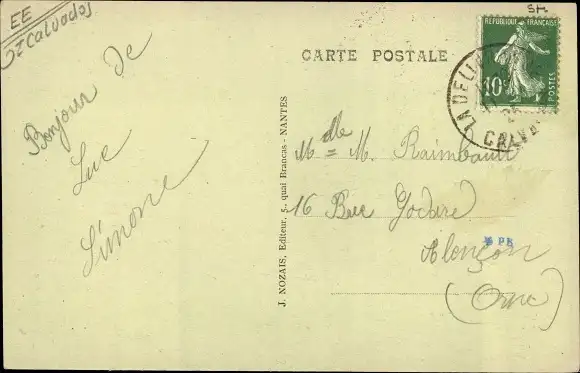 EE
Calvados
SM
CARTE POSTALE
REPUBLIQUE FRANÇAISE
10c
POSTES
LA DELI
CALVA
Bonjour de
Luc
Simone
J. NOZAIS, Editeur, 5, quai Brancas - NANTES
Mlle M. Raimbault
16 Rue Godard
Alençon
(Orne)
PK